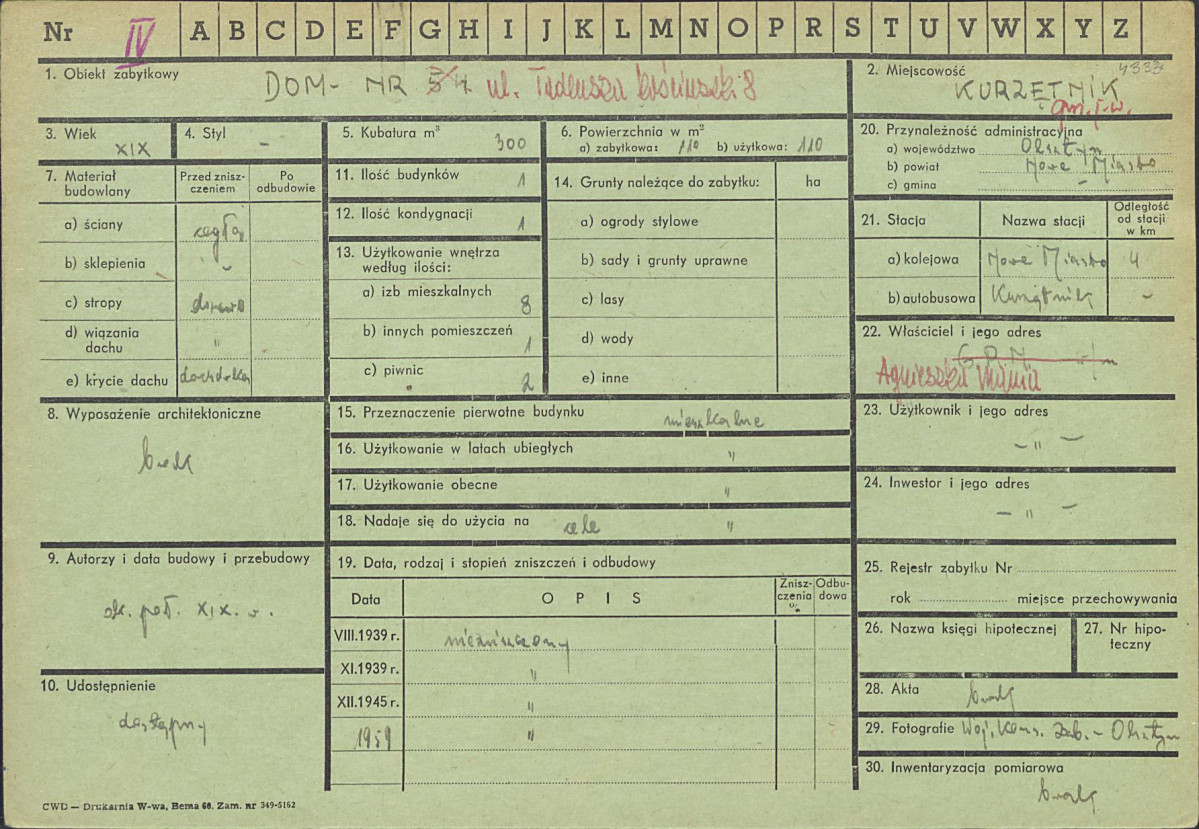 Nr IV A B C D E F G H I J K L M N O P R S T U V W X Y Z
1. Obiekt zabytkowy DOM - NR 54. ul. Tadeusza Kościuszki 8
2. Miejscowość 4333
KURZĘTNIK
gm. j.w.
3. Wiek XIX
4. Styl -
5. Kubatura m³ 300
6. Powierzchnia w m²
a) zabytkowa: 110 b) użytkowa: 110
20. Przynależność administracyjna
a) województwo Olsztyn
b) powiat Nowe Miasto
c) gmina -
7. Materiał budowlany
Przed zniszczeniem
Po odbudowie
a) ściany cegła
b) sklepienia -
c) stropy drewno
d) wiązania dachu "
e) krycie dachu dachówka
11. Ilość budynków 1
12. Ilość kondygnacji 1
13. Użytkowanie wnętrza
według ilości:
a) izb mieszkalnych 8
b) innych pomieszczeń 1
c) piwnic 2
14. Grunty należące do zabytku: ha
a) ogrody stylowe
b) sady i grunty uprawne
c) lasy
d) wody
e) inne
21. Stacja Nazwa stacji
Odległość
od stacji
w km
a) kolejowa Nowe Miasto 4
b) autobusowa Kurzętnik -
22. Właściciel i jego adres
G R N w/m
Agnieszka
8. Wyposażenie architektoniczne
brak
15. Przeznaczenie pierwotne budynku mieszkalne
16. Użytkowanie w latach ubiegłych "
17. Użytkowanie obecne "
18. Nadaje się do użycia na cele "
23. Użytkownik i jego adres
- " -
24. Inwestor i jego adres
- " -
9. Autorzy i data budowy i przebudowy
ok. poł. XIX w.
19. Data, rodzaj i stopień zniszczeń i odbudowy
Data O P I S
Znisz-
czenia
%
Odbu-
dowa
VIII.1939 r. niezniszczony
XI.1939 r. "
XII.1945 r. "
1959 "
25. Rejestr zabytku Nr
rok miejsce przechowywania
26. Nazwa księgi hipotecznej
27. Nr hipo-
teczny
10. Udostępnienie
dostępny
28. Akta brak
29. Fotografie Woj. Kons. Zab. - Olsztyn
30. Inwentaryzacja pomiarowa
brak
CWD — Drukarnia W-wa, Bema 60. Zam. nr 349-5162